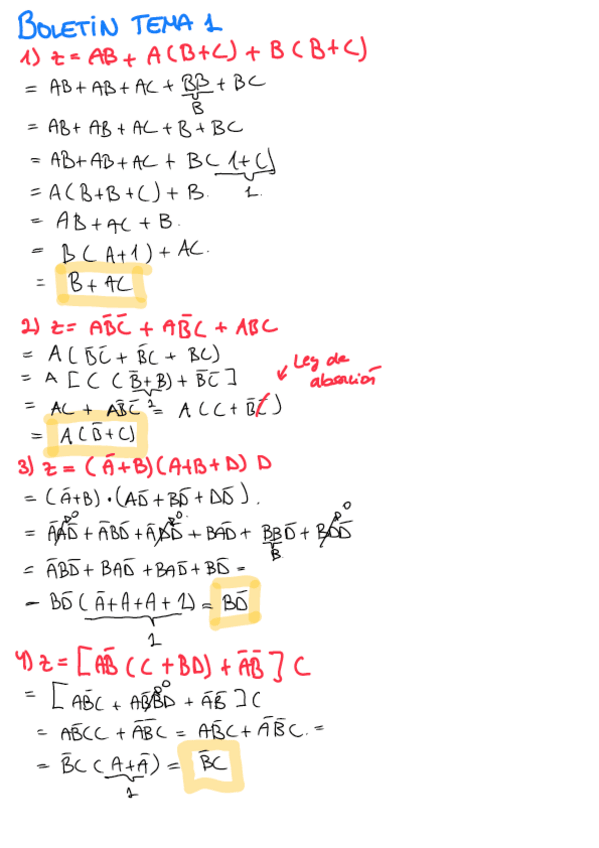 BOLETÍN TEMA 1
1) z = AB + A(B+C) + B(B+C)
= AB + AB + AC + BB + BC
B
= AB + AB + AC + B + BC
= AB + AB + AC + BC 1+C)
1.
= A(B+B+C) + B.
= AB + AC + B.
= B(A+1) + AC.
= B + AC
2) z = AB̄C̄ + AB̄C + ABC
= A(B̄C̄ + B̄C + BC)
= A [C (B̄+B) + B̄C̄]
1
Ley de absorción
= AC + AB̄C̄ = A(C + B̄C̄)
= A(B̄+C)
3) z = (Ā+B)(A+B+D) D̄
= (Ā+B)·(AD̄ + BD̄ + DD̄).
= ĀAD̄ + ĀBD̄ + ĀDD̄ + BAD̄ + BBD̄ + BDD̄
0 0 B 0
= ĀBD̄ + BAD̄ + BAD̄ + BD̄ =
= BD̄(Ā+A+A+1) = BD̄
1
4) z = [AB̄(C + BD) + ĀB̄] C
= [AB̄C + AB̄BD + ĀB̄] C
0
= AB̄CC + ĀB̄C = AB̄C + ĀB̄C. =
= B̄C(A+Ā) = B̄C
1